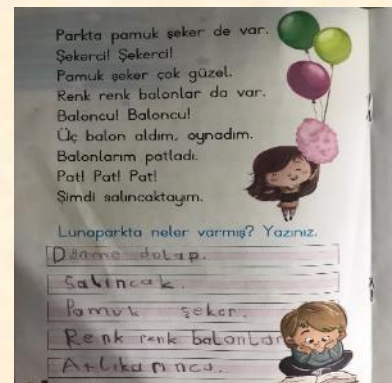 Parkta pamuk şeker de var.
Şekerci! Şekerci!
Pamuk şeker çok güzel.
Renk renk balonlar da var.
Baloncu! Baloncu!
Üç balon aldım, oynadım.
Balonlarım patladı.
Pat! Pat! Pat!
Şimdi salıncaktayım.
Lunaparkta neler varmış? Yazınız.
Dönme dolap.
Salıncak.
Pamuk şeker.
Renk renk balonlar
Atlıkarınca.